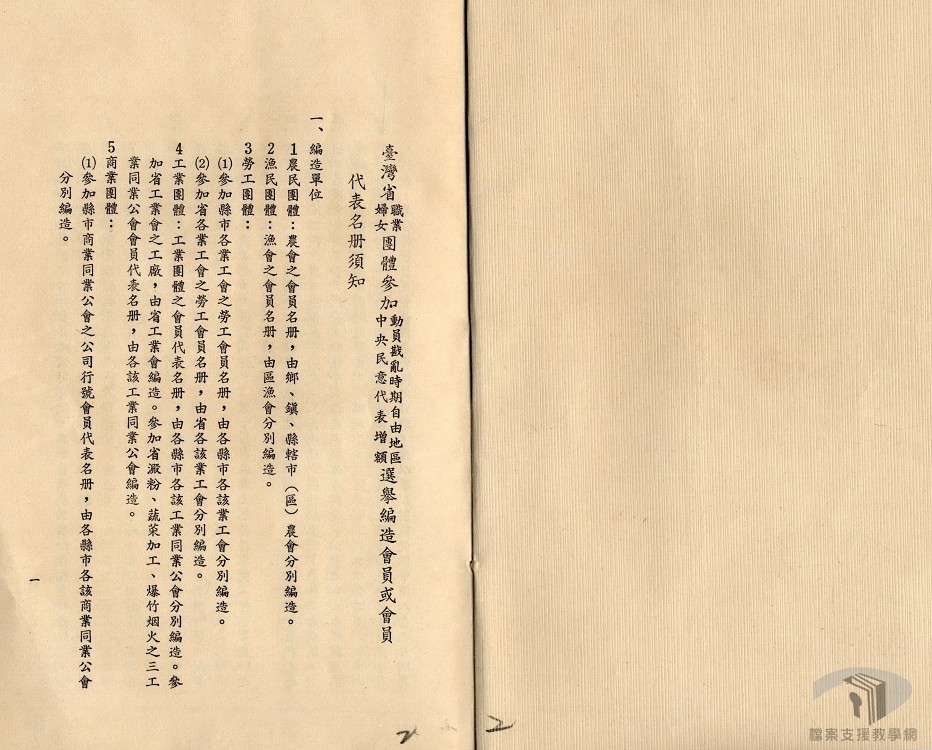 臺灣省職業婦女團體參加動員戡亂時期自由地區中央民意代表增額選舉編造會員或會員
代表名册須知
一、編造單位
1農民團體：農會之會員名册，由鄉、鎮、縣轄市（區）農會分別編造。
2漁民團體：漁會之會員名册，由區漁會分別編造。
3勞工團體：
⑴參加縣市各業工會之勞工會員名册，由各縣市各該業工會分別編造。
⑵參加省各業工會之勞工會員名册，由省各該業工會分別編造。
4工業團體：工業團體之會員代表名册，由各縣市各該工業同業公會分別編造。參
加省工業會之工廠，由省工業會編造。參加省澱粉、蔬菜加工、爆竹烟火之三工
業同業公會會員代表名册，由各該工業同業公會編造。
5商業團體：
⑴參加縣市商業同業公會之公司行號會員代表名册，由各縣市各該商業同業公會
分別編造。
一
2
2
檔案支援教學網